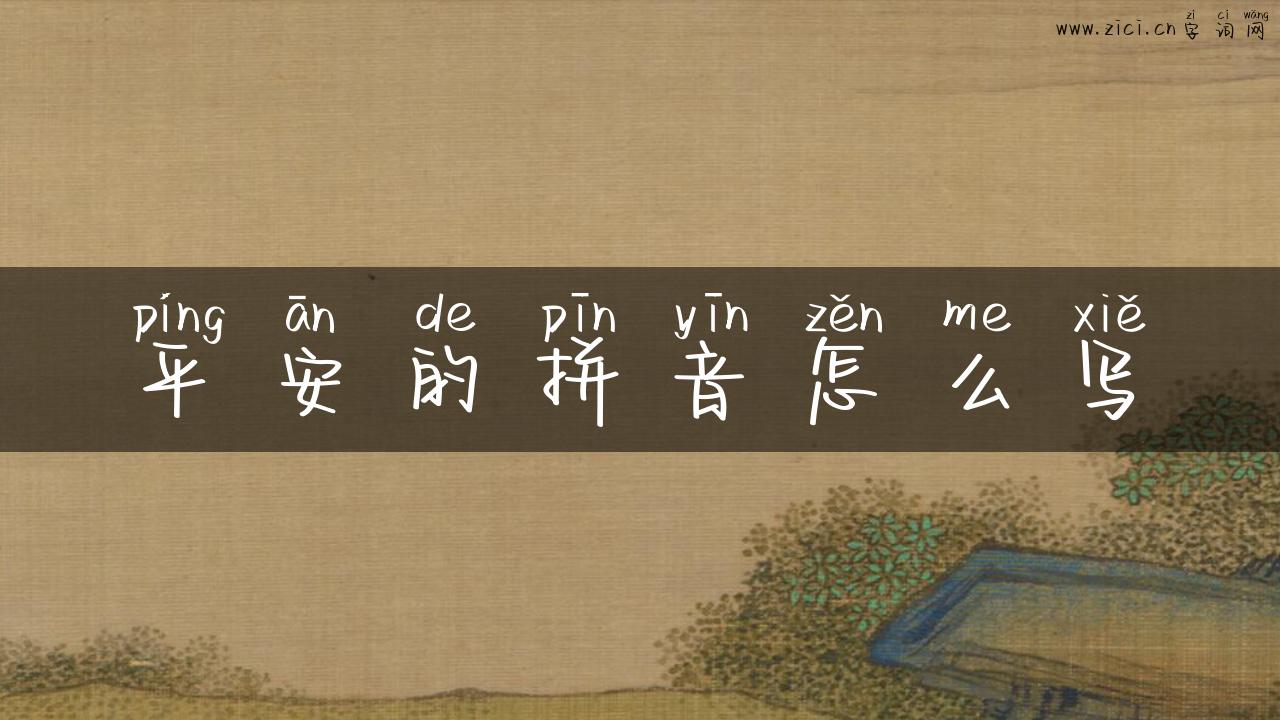 zì cí wǎng
www.zici.cn 字词网
píng ān de pīn yīn zěn me xiě
平安的拼音怎么写